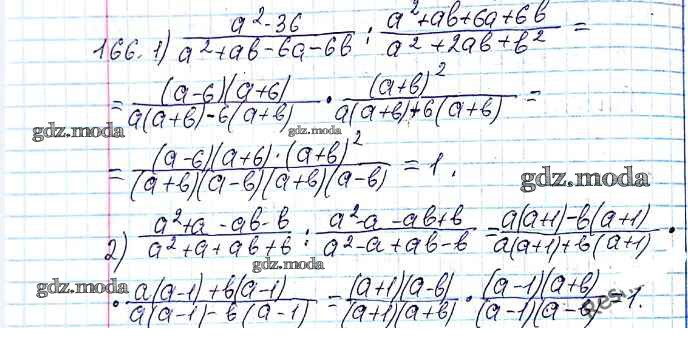 166. 1) (a²-36)/(a²+ab-6a-6b) : (a²+ab+6a+6b)/(a²+2ab+b²) =
= (a-6)(a+6)/(a(a+b)-6(a+b)) · (a+b)²/(a(a+b)+6(a+b)) =
gdz.moda gdz.moda
= (a-6)(a+6)·(a+b)²/((a+b)(a-b)(a+b)(a-b)) = 1.
gdz.moda
2) (a²+a-ab-b)/(a²+a+ab+b) : (a²-a-ab+b)/(a²-a+ab-b) = (a(a+1)-b(a+1))/(a(a+1)+b(a+1)) ·
gdz.moda
gdz.moda
· (a(a-1)+b(a-1))/(a(a-1)-b(a-1)) = (a+1)(a-b)/((a+1)(a+b)) · (a-1)(a+b)/((a-1)(a-b)) = 1.